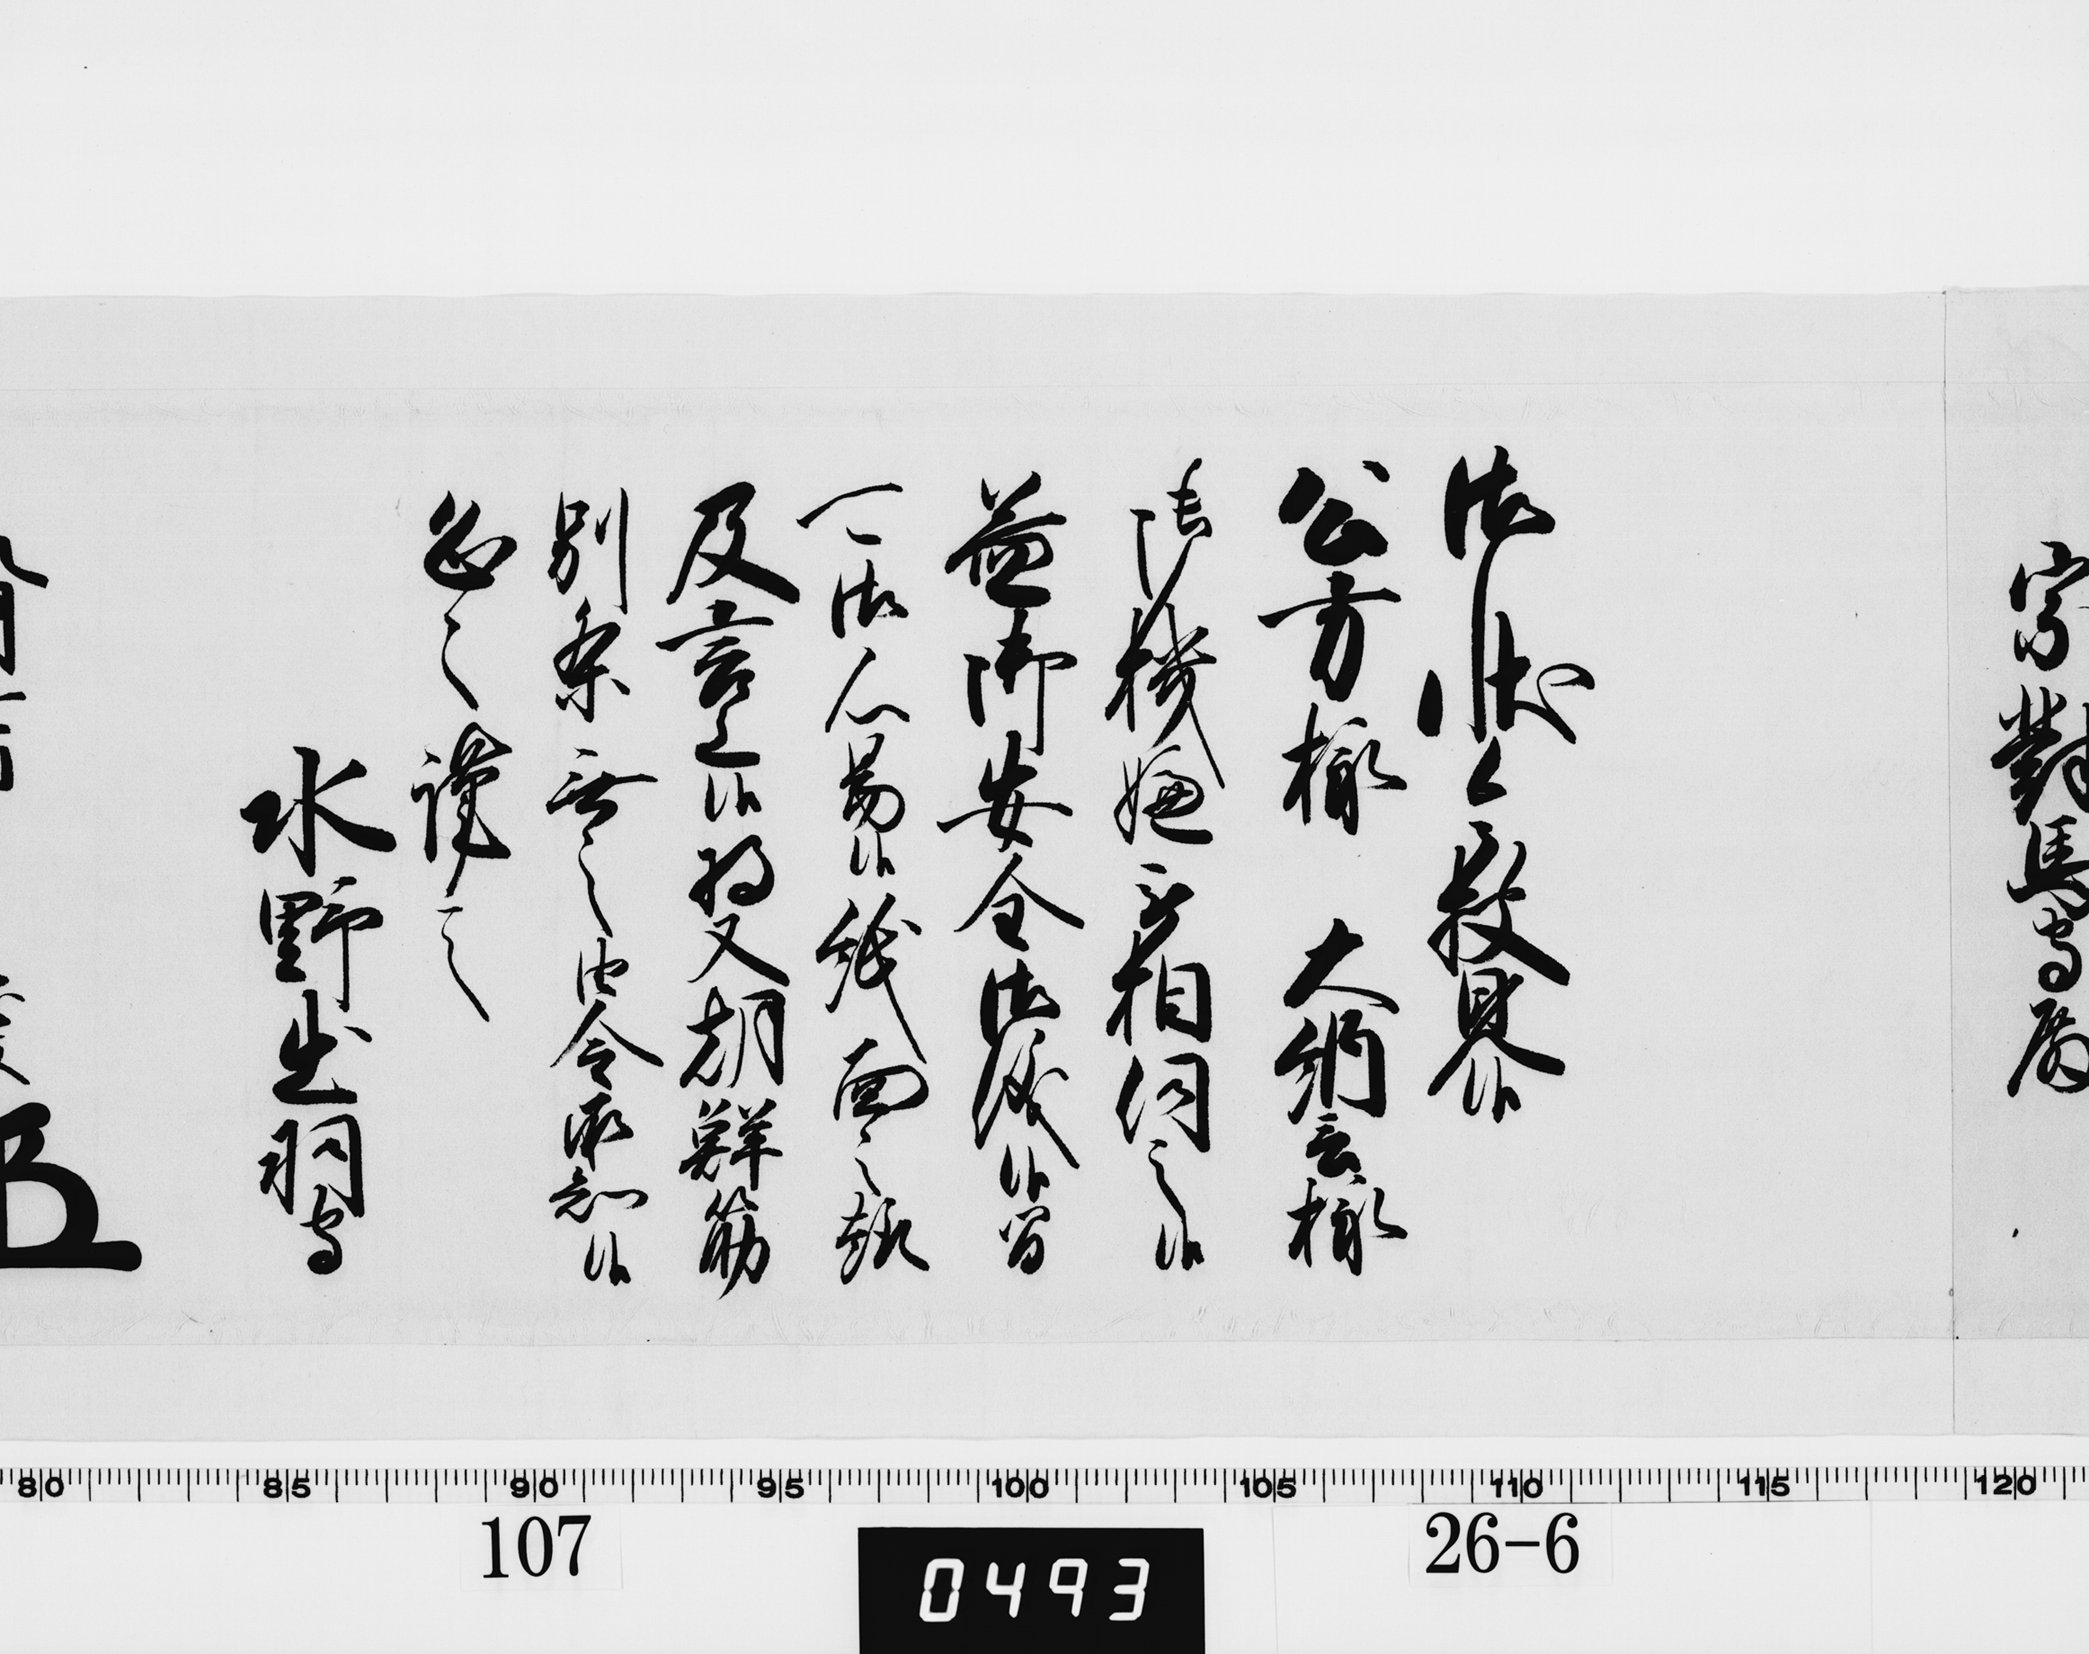 宗對馬守殿
御状令披見候
公方様 大納言様
御機嫌被相伺之候
益御安全御儀候間
可御心易候紙面之趣
及言上候将又朝鮮筋
別条無之由令承知候
恐々謹言
水野出羽守
80 85 90 95 100 105 110 115 120
107 26-6
0493